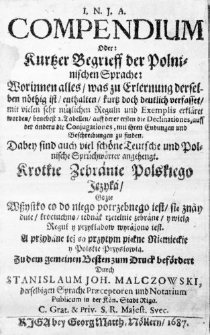 I. N. J. A.
COMPENDIUM
Oder:
Kurtzer Begrieff der Polni-
nischen Sprache:
Worinnen alles / was zu Erlernung dersel-
ben nöthig ist / enthalten / kurtz doch deutlich verfasset /
mit vielen sehr nützlichen Reguln und Exemplis erkläret
worden / benebst 2. Tabellen / auff derer ersten die Declinationes, auff
der andern die Conjugationes, mit ihren Endungen und
Beschreibungen zu finden.
Dabey sind auch viel schöne Teutsche und Pol-
nische Sprüchwörter angehengt.
Krotkie Zebránie Polskiego
Języká /
Gdzie
Wszystko co do niego potrzebnego iest / sie znáy
duie / krociuchno / iednák rzetelnie zebráne / y wielą
Reguł y przykładow wyráżono iest.
A przydáne też są przytym piękne Niemieckie
y Polskie Przysłowia.
Zu dem gemeinen Besten zum Druck befördert
Durch
STANISLAUM JOH. MALCZOWSKI,
derselbigen Sprache Præceptorem und Notarium
Publicum in der Kön. Stadt Riga.
C. Grat. & Priv. S. R. Majest. Svec.
RIGA bey Georg Matth. Nöllern / 1687.